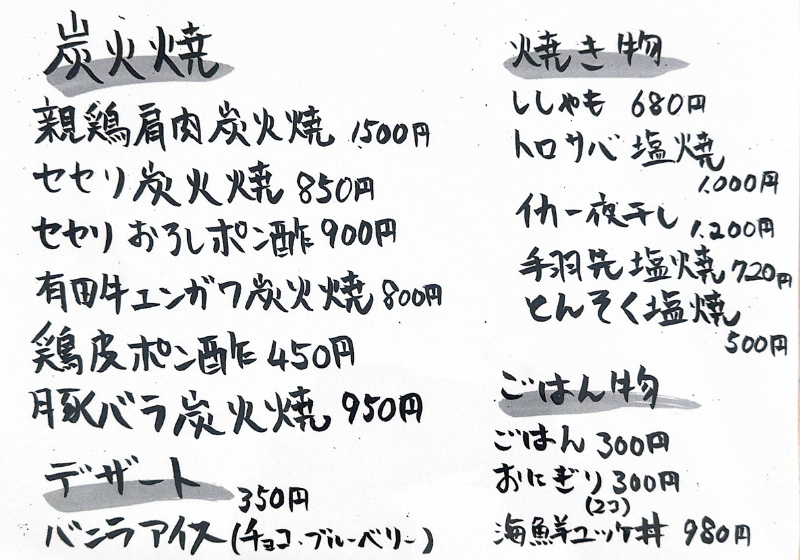 炭火焼
親鶏肩肉炭火焼 1,500円
セセリ炭火焼 850円
セセリおろしポン酢 900円
有田牛エンガワ炭火焼 800円
鶏皮ポン酢 450円
豚バラ炭火焼 950円
デザート
350円
バニラアイス(チョコ・ブルーベリー)
焼き物
ししゃも 680円
トロサバ塩焼
1,000円
イカ一夜干し 1,200円
手羽先塩焼 720円
とんそく塩焼
500円
ごはん物
ごはん 300円
おにぎり 300円
(2コ)
海鮮ユッケ丼 980円